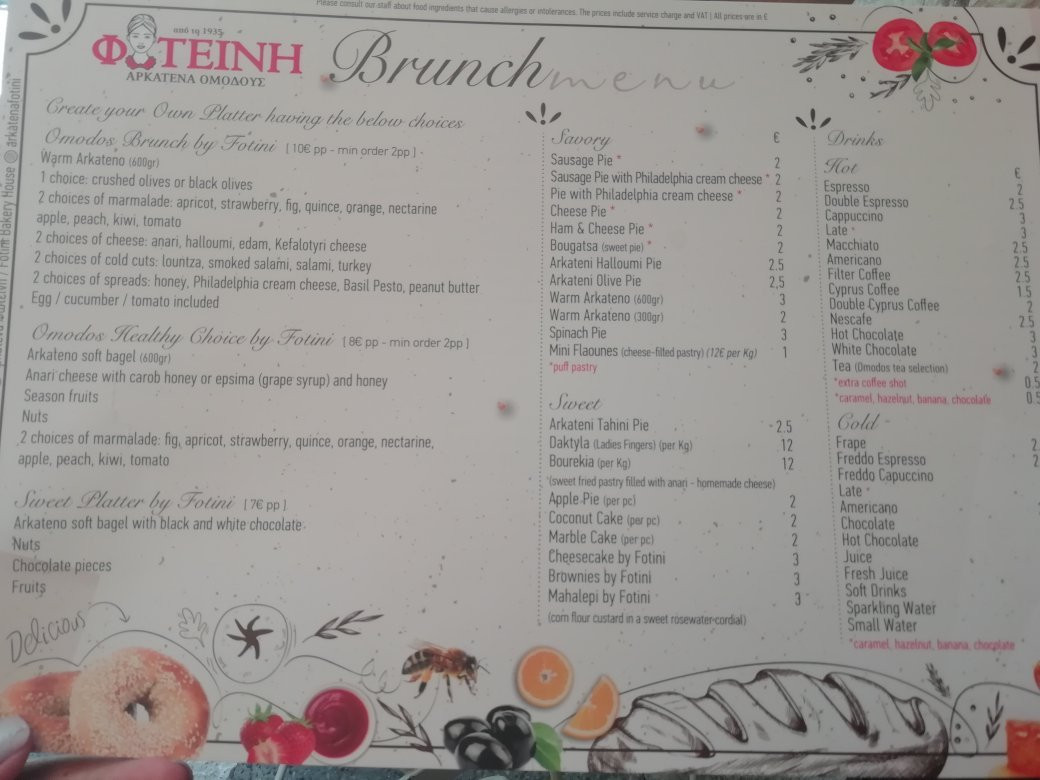 Please consult our staff about food ingredients that cause allergies or intolerances. The prices include service charge and VAT | All prices are in €
από τη 1935
ΦΩΤΕΙΝΗ
ΑΡΚΑΤΕΝΑ ΟΜΟΔΟΥΣ
Brunch menu
Fotini Bakery House @ arkatenafotini
Create your Own Platter having the below choices
Omodos Brunch by Fotini [ 10€ pp - min order 2pp ]
Warm Arkateno (600gr)
1 choice: crushed olives or black olives
2 choices of marmalade: apricot, strawberry, fig, quince, orange, nectarine
apple, peach, kiwi, tomato
2 choices of cheese: anari, halloumi, edam, Kefalotyri cheese
2 choices of cold cuts: lountza, smoked salami, salami, turkey
2 choices of spreads: honey, Philadelphia cream cheese, Basil Pesto, peanut butter
Egg / cucumber / tomato included
Omodos Healthy Choice by Fotini [ 8€ pp - min order 2pp ]
Arkateno soft bagel (600gr)
Anari cheese with carob honey or epsima (grape syrup) and honey
Season fruits
Nuts
2 choices of marmalade: fig, apricot, strawberry, quince, orange, nectarine,
apple, peach, kiwi, tomato
Sweet Platter by Fotini [ 7€ pp ]
Arkateno soft bagel with black and white chocolate
Nuts
Chocolate pieces
Fruits
Delicious
Savory €
Sausage Pie * 2
Sausage Pie with Philadelphia cream cheese * 2
Pie with Philadelphia cream cheese * 2
Cheese Pie * 2
Ham & Cheese Pie * 2
Bougatsa (sweet pie) * 2
Arkateni Halloumi Pie 2.5
Arkateni Olive Pie 2,5
Warm Arkateno (600gr) 3
Warm Arkateno (300gr) 2
Spinach Pie 3
Mini Flaounes (cheese-filled pastry) (12€ per Kg) 1
*puff pastry
Sweet
Arkateni Tahini Pie 2.5
Daktyla (Ladies Fingers) (per Kg) 12
Bourekia (per Kg) 12
(sweet fried pastry filled with anari - homemade cheese)
Apple Pie (per pc) 2
Coconut Cake (per pc) 2
Marble Cake (per pc) 2
Cheesecake by Fotini 3
Brownies by Fotini 3
Mahalepi by Fotini 3
(corn flour custard in a sweet rosewater-cordial)
Drinks
Hot €
Espresso 2
Double Espresso 2.5
Cappuccino 3
Late * 3
Macchiato 2.5
Americano 2.5
Filter Coffee 2.5
Cyprus Coffee 1.5
Double Cyprus Coffee 2
Nescafe 2.5
Hot Chocolate 3
White Chocolate 3
Tea (Omodos tea selection) 2
*extra coffee shot 0.5
*caramel, hazelnut, banana, chocolate 0.5
Cold
Frape 2.
Freddo Espresso 2
Freddo Capuccino
Late *
Americano
Chocolate
Hot Chocolate
Juice
Fresh Juice
Soft Drinks
Sparkling Water
Small Water
*caramel, hazelnut, banana, chocplate